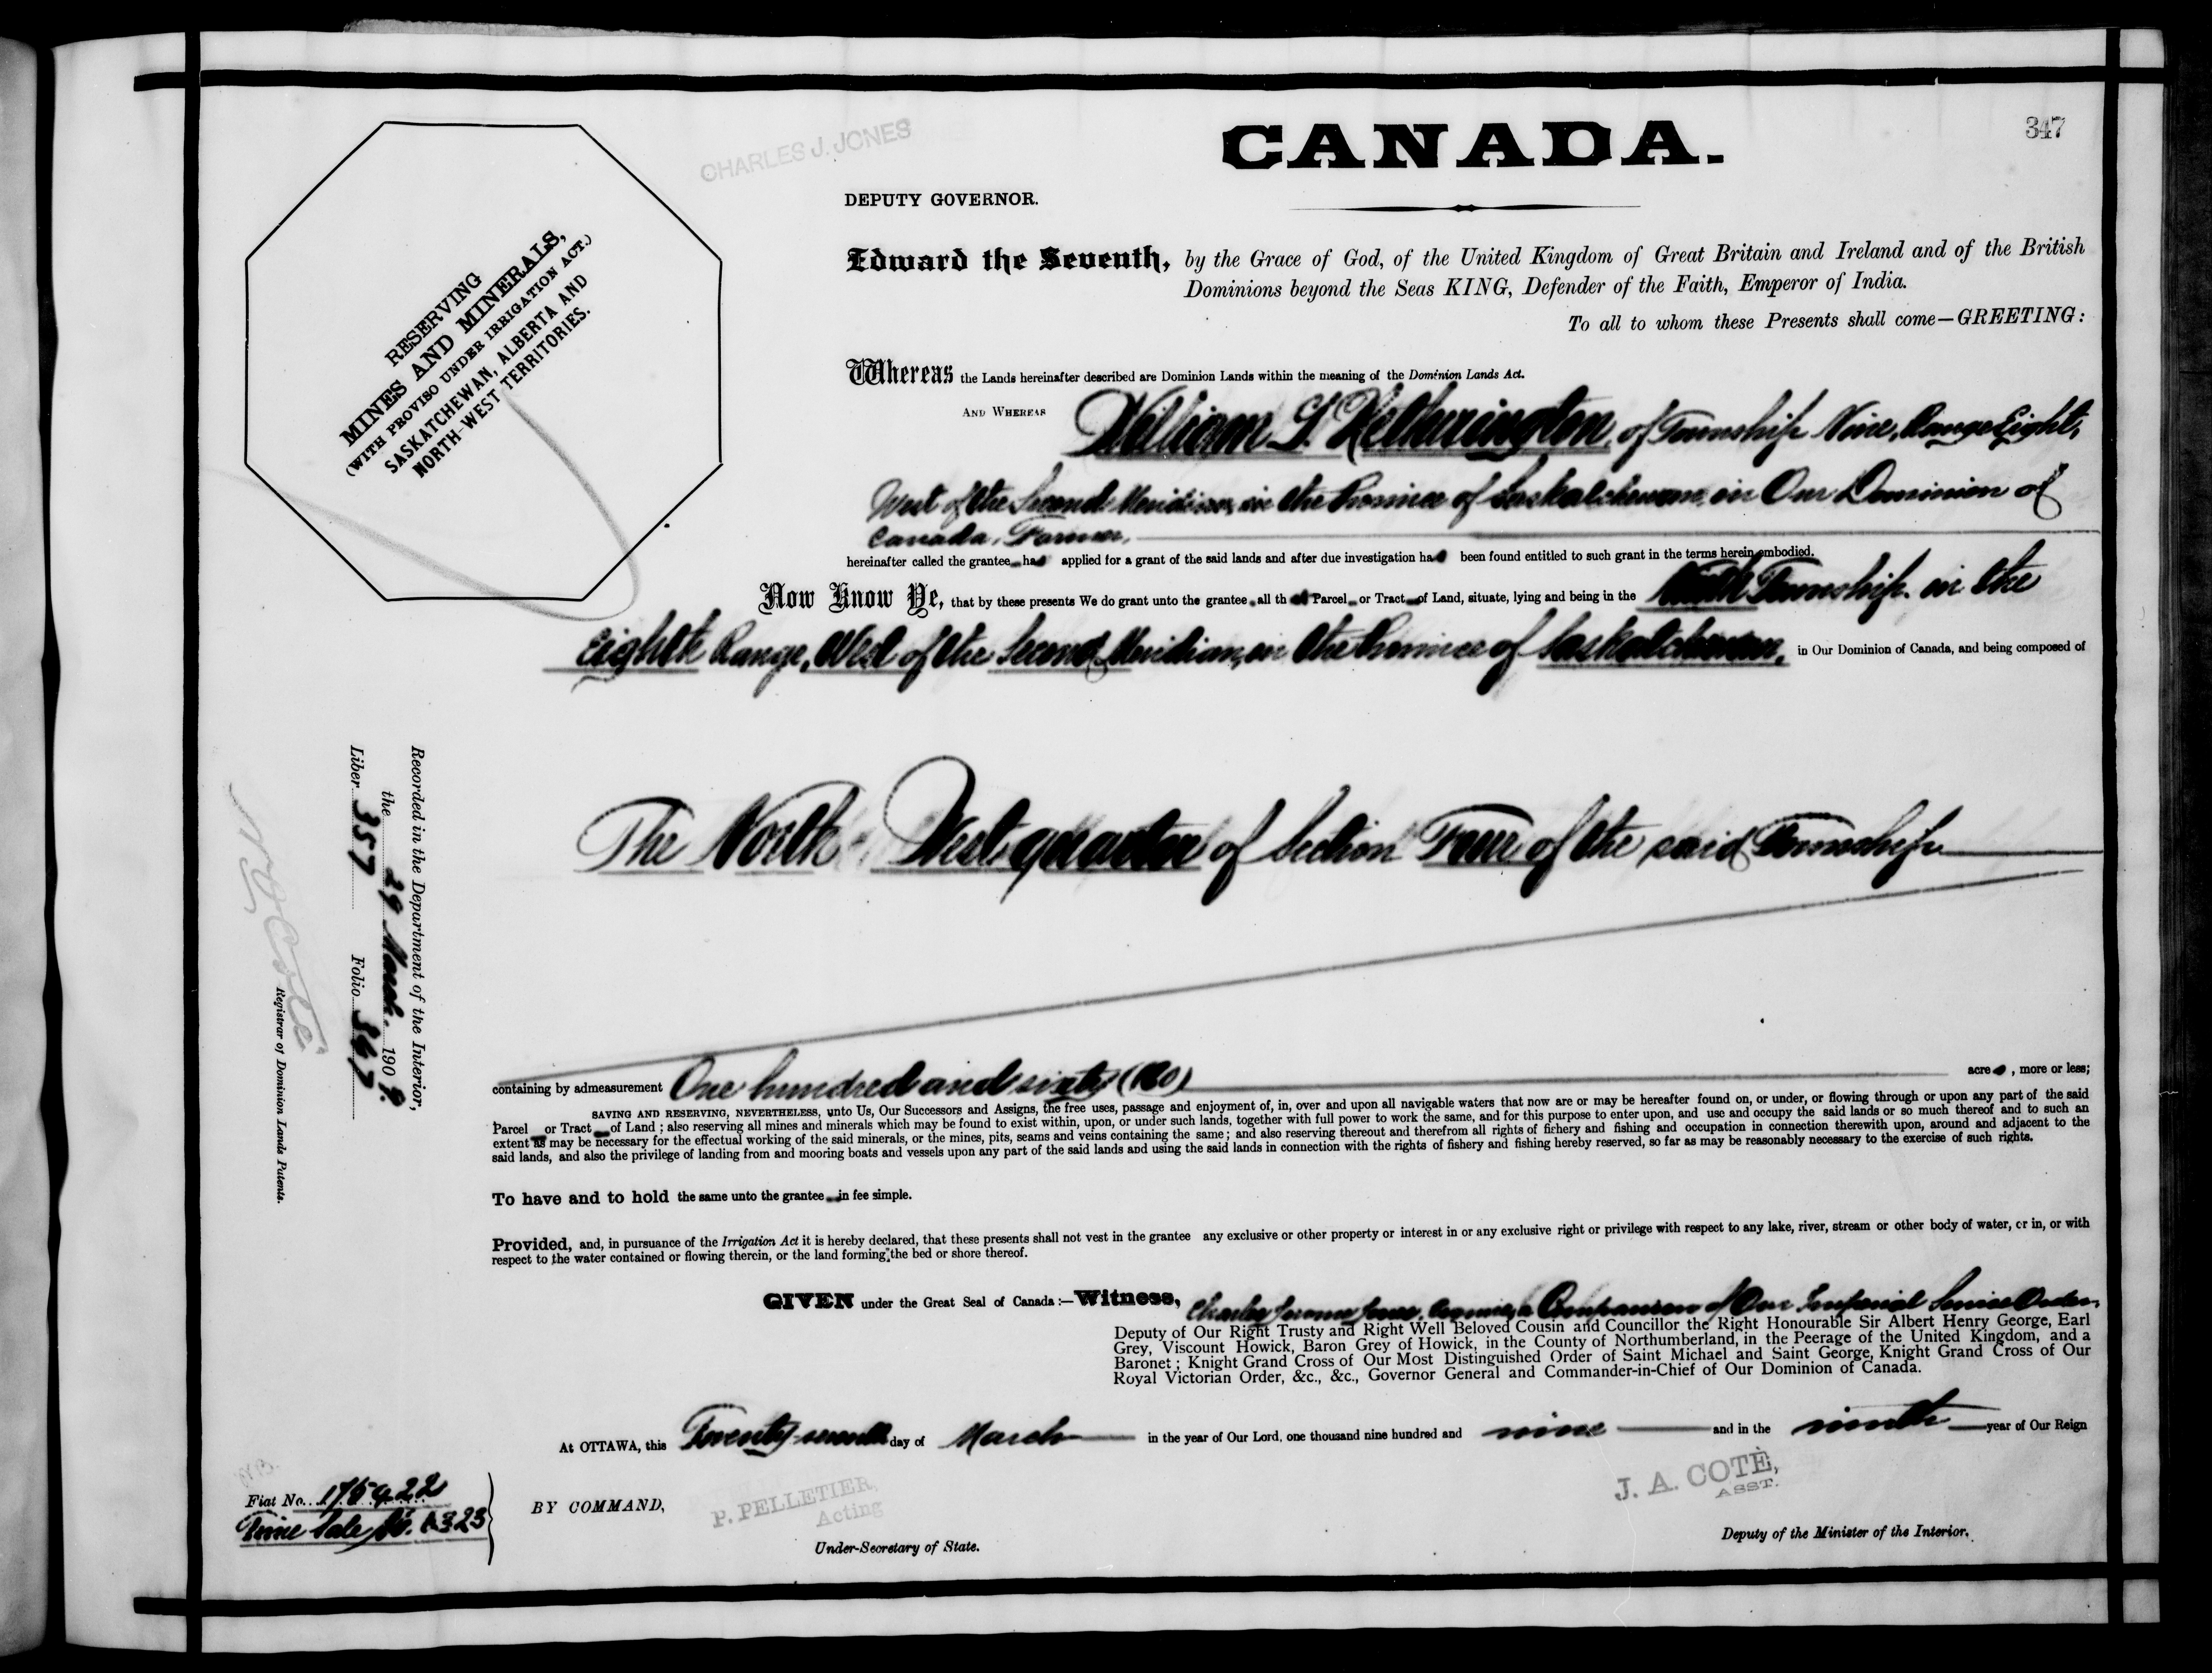 347
CHARLES J. JONES
CANADA.
DEPUTY GOVERNOR.
RESERVING
MINES AND MINERALS,
(WITH PROVISO UNDER IRRIGATION ACT.)
SASKATCHEWAN, ALBERTA AND
NORTH-WEST TERRITORIES.
Edward the Seventh, by the Grace of God, of the United Kingdom of Great Britain and Ireland and of the British
Dominions beyond the Seas KING, Defender of the Faith, Emperor of India.
To all to whom these Presents shall come—GREETING:
Whereas the Lands hereinafter described are Dominion Lands within the meaning of the Dominion Lands Act.
AND WHEREAS William Hetherington, of Township Nine, Range Eight,
West of the Second Meridian, in the Province of Saskatchewan, in Our Dominion of
Canada, Farmer,
hereinafter called the grantee has applied for a grant of the said lands and after due investigation has been found entitled to such grant in the terms herein embodied.
Now Know Ye, that by these presents We do grant unto the grantee all that Parcel or Tract of Land, situate, lying and being in the Ninth Township, in the
Eighth Range, West of the Second Meridian, in the Province of Saskatchewan, in Our Dominion of Canada, and being composed of
The North-West quarter of Section Four of the said Township
Recorded in the Department of the Interior,
the 29 March. 1909.
Liber 357 Folio 367
N O Coté
Registrar of Dominion Lands Patents.
containing by admeasurement One hundred and sixty (160) acres, more or less;
SAVING AND RESERVING, NEVERTHELESS, unto Us, Our Successors and Assigns, the free uses, passage and enjoyment of, in, over and upon all navigable waters that now are or may be hereafter found on, or under, or flowing through or upon any part of the said
Parcel or Tract of Land; also reserving all mines and minerals which may be found to exist within, upon, or under such lands, together with full power to work the same, and for this purpose to enter upon, and use and occupy the said lands or so much thereof and to such an
extent as may be necessary for the effectual working of the said minerals, or the mines, pits, seams and veins containing the same; and also reserving thereout and therefrom all rights of fichery and fishing and occupation in connection therewith upon, around and adjacent to the
said lands, and also the privilege of landing from and mooring boats and vessels upon any part of the said lands and using the said lands in connection with the rights of fishery and fishing hereby reserved, so far as may be reasonably necessary to the exercise of such rights.
To have and to hold the same unto the grantee in fee simple.
Provided, and, in pursuance of the Irrigation Act it is hereby declared, that these presents shall not vest in the grantee any exclusive or other property or interest in or any exclusive right or privilege with respect to any lake, river, stream or other body of water, or in, or with
respect to the water contained or flowing therein, or the land forming the bed or shore thereof.
GIVEN under the Great Seal of Canada:—Witness, Charles Jerome Jones, Esquire, a Companion of Our Imperial Service Order,
Deputy of Our Right Trusty and Right Well Beloved Cousin and Councillor the Right Honourable Sir Albert Henry George, Earl
Grey, Viscount Howick, Baron Grey of Howick, in the County of Northumberland, in the Peerage of the United Kingdom, and a
Baronet; Knight Grand Cross of Our Most Distinguished Order of Saint Michael and Saint George, Knight Grand Cross of Our
Royal Victorian Order, &c., &c., Governor General and Commander-in-Chief of Our Dominion of Canada.
At OTTAWA, this Twenty-seventh day of March in the year of Our Lord, one thousand nine hundred and nine and in the ninth year of Our Reign
Fiat No. 175422
Sale No.
BY COMMAND,
P. PELLETIER,
Acting
Under-Secretary of State.
J. A. COTÈ,
ASST.
Deputy of the Minister of the Interior.